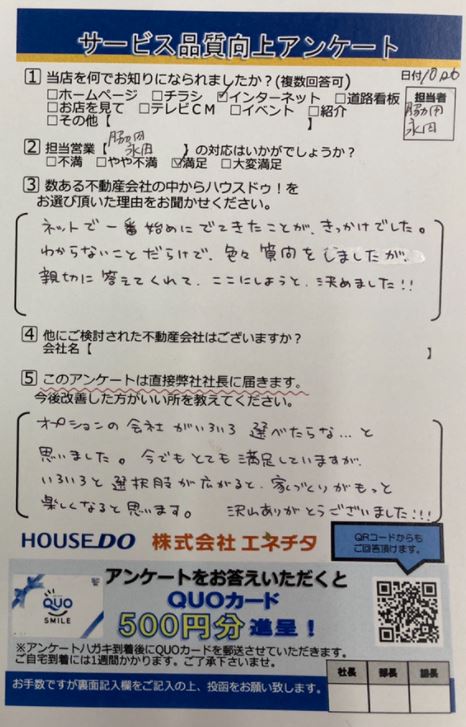 サービス品質向上アンケート
1 当店を何でお知りになられましたか?(複数回答可)
日付
□ホームページ □チラシ ☑インターネット □道路看板
□お店を見て □テレビCM □イベント □紹介
□その他【 】
担当者
脇田
永田
2 担当営業【脇田 永田】の対応はいかがでしょうか?
□不満 □やや不満 ☑満足 □大変満足
3 数ある不動産会社の中からハウスドゥ!を
お選び頂いた理由をお聞かせください。
ネットで一番始めにでてきたことが、きっかけでした。
わからないことだらけで、色々質問をしましたが、
親切に答えてくれて、ここにしようと、決めました!!
4 他にご検討された不動産会社はございますか?
会社名【 】
5 このアンケートは直接弊社社長に届きます。
今後改善した方がいい所を教えてください。
オプションの会社がいろいろ選べたらな...と
思いました。今でもとても満足していますが、
いろいろと選択肢が広がると、家づくりがもっと
楽しくなると思います。 沢山ありがとうございました!!!
HOUSE DO 株式会社 エネチタ
QRコードからも
ご回答頂けます。
アンケートをお答えいただくと
QUOカード
500円分 進呈!
QUO
SMILE
※アンケートハガキ到着後にQUOカードを郵送させていただきます。
ご自宅到着には1週間かかります。ご了承下さいませ。
お手数ですが裏面記入欄をご記入の上、投函をお願い致します。
社長 部長 店長